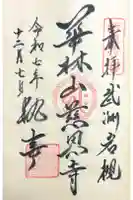 奉拝 武州岩槻
華林山慈恩寺
令和七年
十二月七日